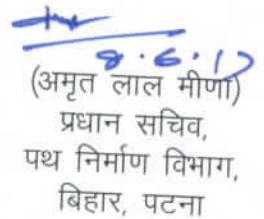 8.6.17
(अमृत लाल मीणा)
प्रधान सचिव,
पथ निर्माण विभाग,
बिहार, पटना